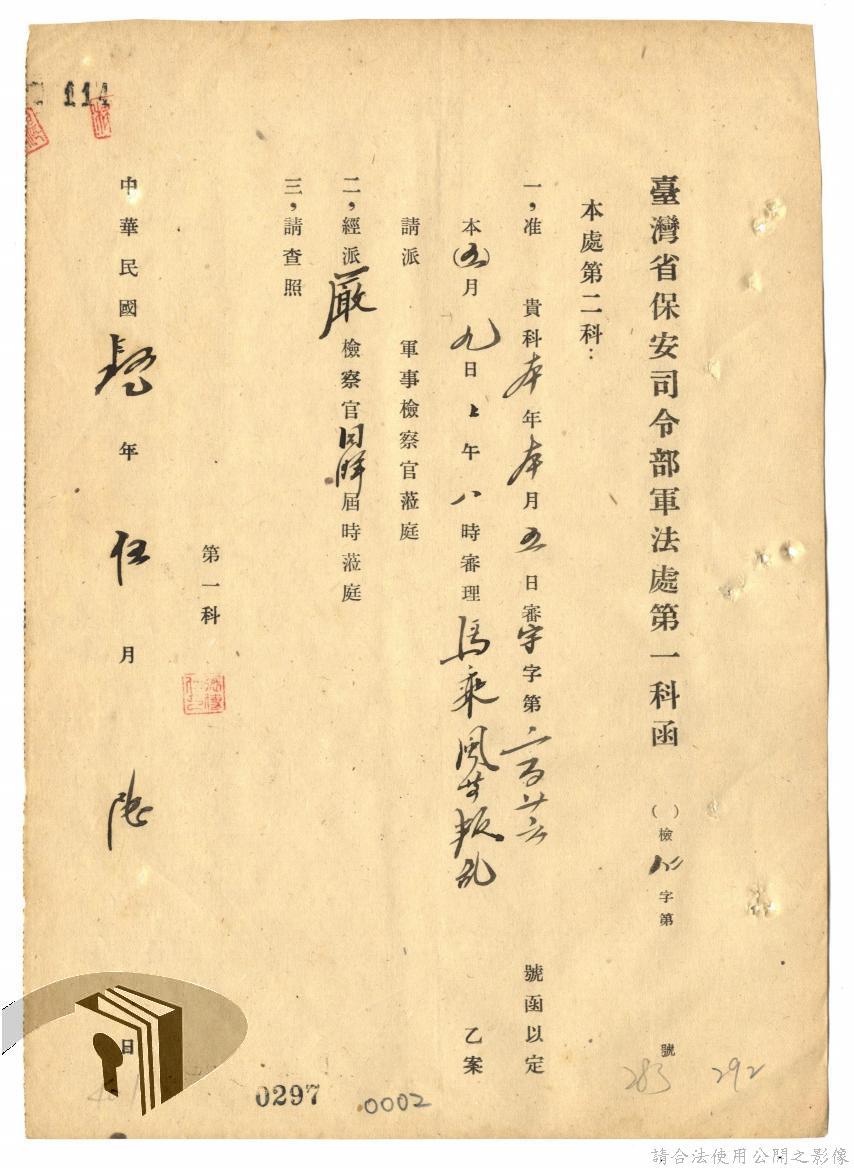 臺灣省保安司令部軍法處第一科函
( )檢仁字第 號
本處第二科：
一，准 貴科本年本月五日審字字第二百廿六號函以定
本(五)月九日上午八時審理馮乘風等叛乱乙案
請派 軍事檢察官蒞庭
二，經派嚴檢察官 屆時蒞庭
三，請查照
第一科
中華民國 年伍月陸日
114
283
292
0297
0002
請合法使用公開之影像